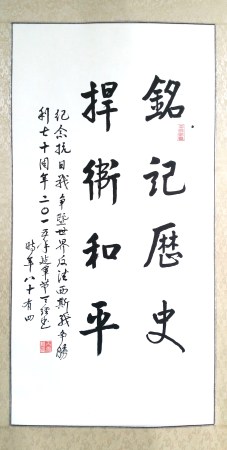 銘记歷史
捍衛和平
纪念抗日战争暨世界反法西斯战争勝
利七十周年二〇一五年
時年八十有四